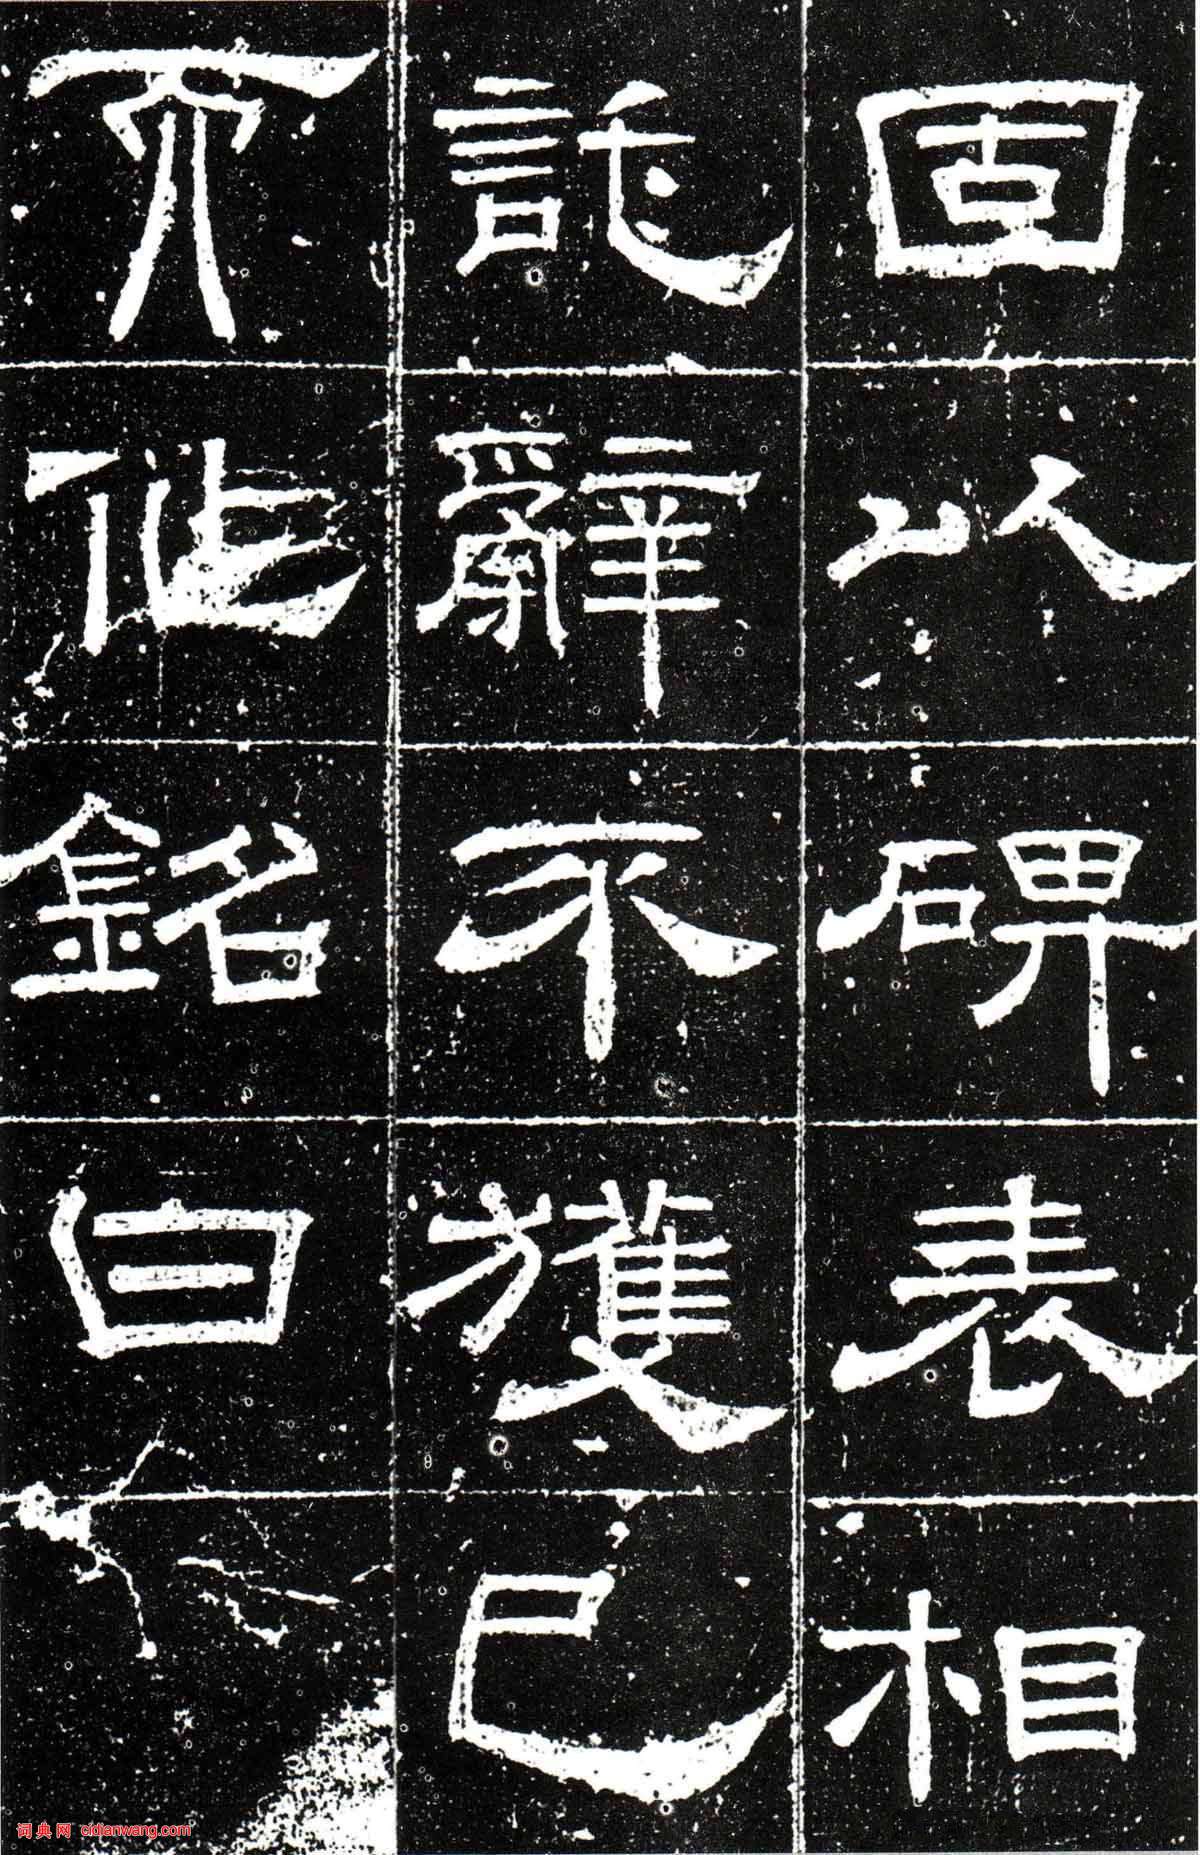 固以碑表相
託辭不獲已
而作銘曰
词典网 cidianwang.com